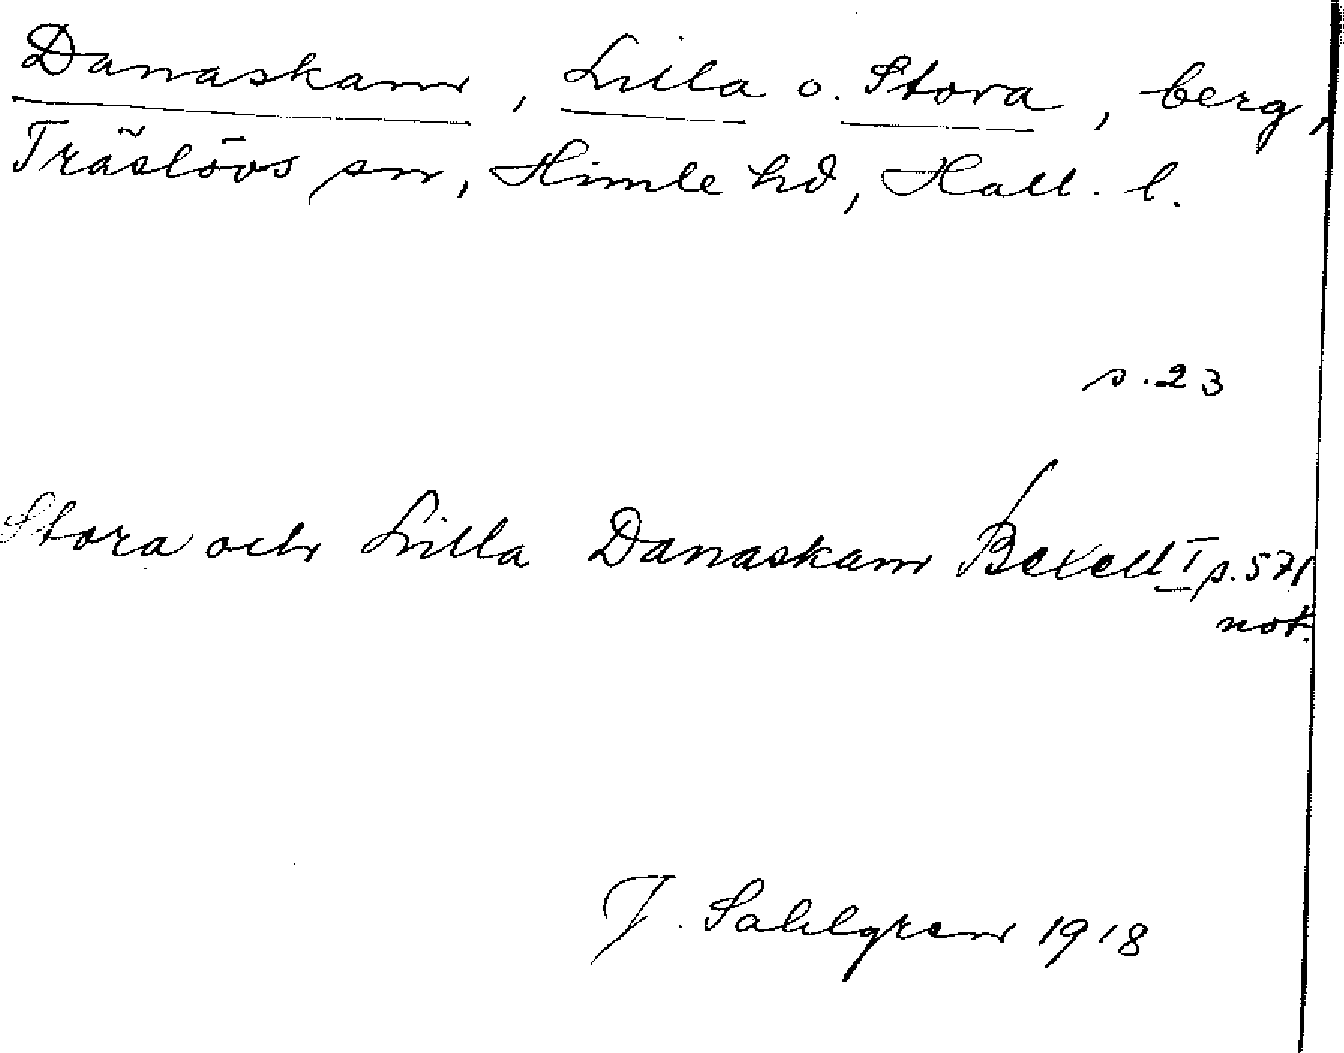 Danaskam, Lilla o. Stora, berg,
Träslövs sn, Himle hd, Hall. l.
s. 23
Stora och Lilla Danaskam Bexell I s. 571
not.
J. Sahlgren 1918